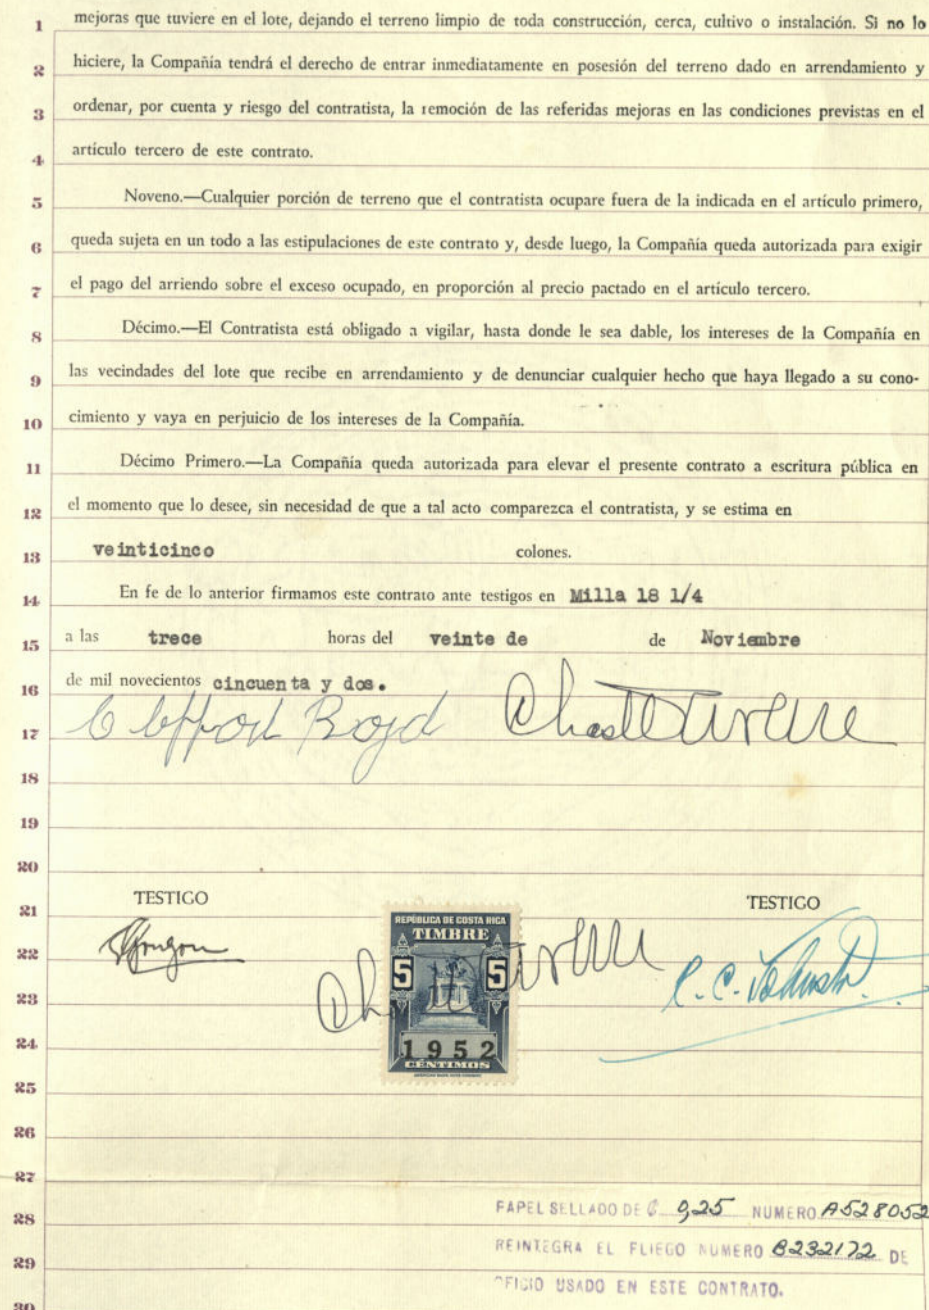 1 mejoras que tuviere en el lote, dejando el terreno limpio de toda construcción, cerca, cultivo o instalación. Si no lo
2 hiciere, la Compañía tendrá el derecho de entrar inmediatamente en posesión del terreno dado en arrendamiento y
3 ordenar, por cuenta y riesgo del contratista, la remoción de las referidas mejoras en las condiciones previstas en el
4 artículo tercero de este contrato.
5 Noveno.—Cualquier porción de terreno que el contratista ocupare fuera de la indicada en el artículo primero,
6 queda sujeta en un todo a las estipulaciones de este contrato y, desde luego, la Compañía queda autorizada para exigir
7 el pago del arriendo sobre el exceso ocupado, en proporción al precio pactado en el artículo tercero.
8 Décimo.—El Contratista está obligado a vigilar, hasta donde le sea dable, los intereses de la Compañía en
9 las vecindades del lote que recibe en arrendamiento y de denunciar cualquier hecho que haya llegado a su cono-
10 cimiento y vaya en perjuicio de los intereses de la Compañía.
11 Décimo Primero.—La Compañía queda autorizada para elevar el presente contrato a escritura pública en
12 el momento que lo desee, sin necesidad de que a tal acto comparezca el contratista, y se estima en
13 veinticinco colones.
14 En fe de lo anterior firmamos este contrato ante testigos en Milla 18 1/4
15 a las trece horas del veinte de de Noviembre
16 de mil novecientos cincuenta y dos.
17 Clifford Boyd
18
19
20
21 TESTIGO TESTIGO
REPÚBLICA DE COSTA RICA
TIMBRE
22 5 5
23
24 1952
CÉNTIMOS
25
26
27
28 PAPEL SELLADO DE ₡ 0,25 NUMERO A528052
29 REINTEGRA EL PLIEGO NUMERO B232172 DE
OFICIO USADO EN ESTE CONTRATO.
30